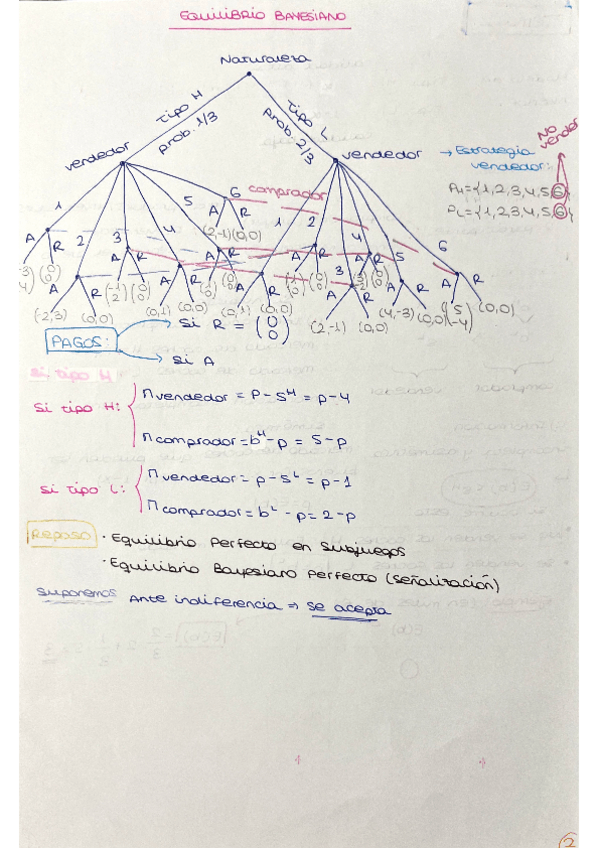 EQUILIBRIO BAYESIANO
Naturaleza
Tipo H
prob. 1/3
Tipo L
Prob. 2/3
vendedor
vendedor
→ Estrategia
vendedor:
No vender
PH={1,2,3,4,5,6}
PL={1,2,3,4,5,6}
comprador
1 2 3 4 5 6
1 2 3 4 5 6
A R
(2,-1) (0,0)
A R
(-2,3) (0,0)
(0,1) (0,0)
(2,-1) (0,0)
(4,-3) (0,0)
(0,0)
PAGOS:
si R = (0 0)
si A
si tipo H
si tipo H:
π vendedor = P - S^H = P - 4
π comprador = b^H - P = 5 - P
si tipo L:
π vendedor = P - S^L = P - 1
π comprador = b^L - P = 2 - P
Reposo
· Equilibrio Perfecto en Subjuegos
· Equilibrio Bayesiano Perfecto (señalización)
Suponemos Ante indiferencia ⇒ se acepta
2